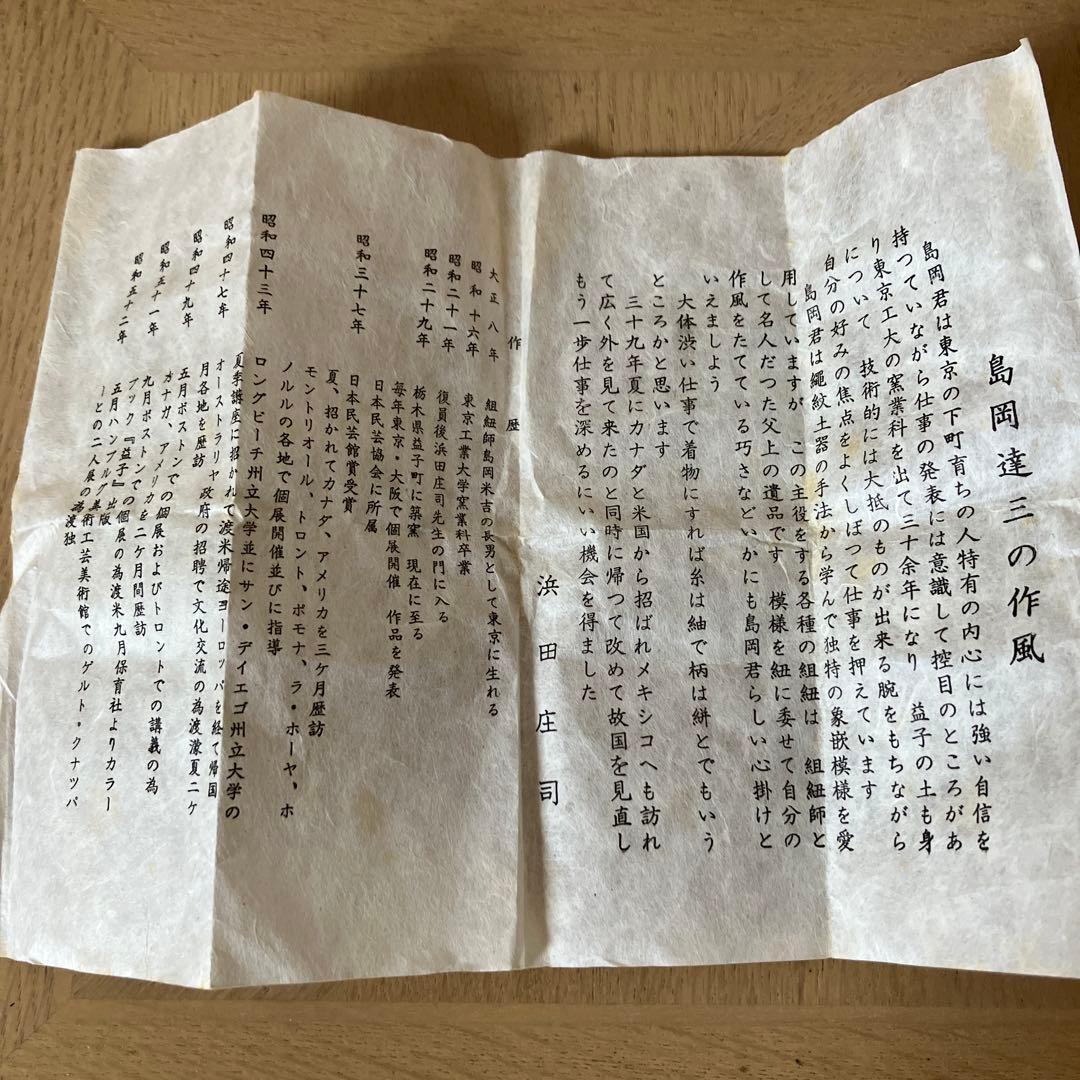 島岡達三の作風
島岡君は東京の下町育ちの人特有の内心には強い自信を
持つていながら仕事の発表には意識して控目のところがあ
り東京工大の窯業科を出て三十余年になり　益子の土も身
について　技術的には大抵のものが出来る腕をもちながら
自分の好みの焦点をよくしぼつて仕事を押えています
島岡君は繩紋土器の手法から学んで独特の象嵌模様を愛
用していますが　この主役をする各種の組紐は　組紐師と
して名人だつた父上の遺品です　模様を紐に委せて自分の
作風をたてている巧さなどいかにも島岡君らしい心掛けと
いえましよう
大体渋い仕事で着物にすれば糸は紬で柄は絣とでもいう
ところかと思います
三十九年夏にカナダと米国から招ばれメキシコへも訪れ
て広く外を見て来たのと同時に帰つて改めて故国を見直し
もう一歩仕事を深めるにいい機会を得ました
浜田庄司
作歴
大正八年　組紐師島岡米吉の長男として東京に生れる
昭和十六年　東京工業大学窯業科卒業
昭和二十一年　復員後浜田庄司先生の門に入る
昭和二十九年　栃木県益子町に築窯　現在に至る
毎年東京・大阪で個展開催　作品を発表
日本民芸協会に所属
昭和三十七年　日本民芸館賞受賞
夏、招かれてカナダ、アメリカを三ケ月歴訪
モントリオール、トロント、ポモナ、ラ・ホーヤ、ホ
ノルルの各地で個展開催並びに指導
昭和四十三年　ロングビーチ州立大学並にサン・デイエゴ州立大学の
夏季講座に招かれて渡米帰途ヨーロッパを経て帰国
昭和四十七年　オーストラリヤ政府の招聘で文化交流の為渡濠夏二ケ
月各地を歴訪
昭和四十九年　五月ボストンでの個展およびトロントでの講義の為
カナガ、アメリカを二ケ月間歴訪
昭和五十一年　九月ボストンでの個展の為渡米九月保育社よりカラー
ブック『益子』出版
昭和五十二年　五月ハンブルグ美術工芸美術館でのゲルト・クナツパ
ーとの二人展の為渡独